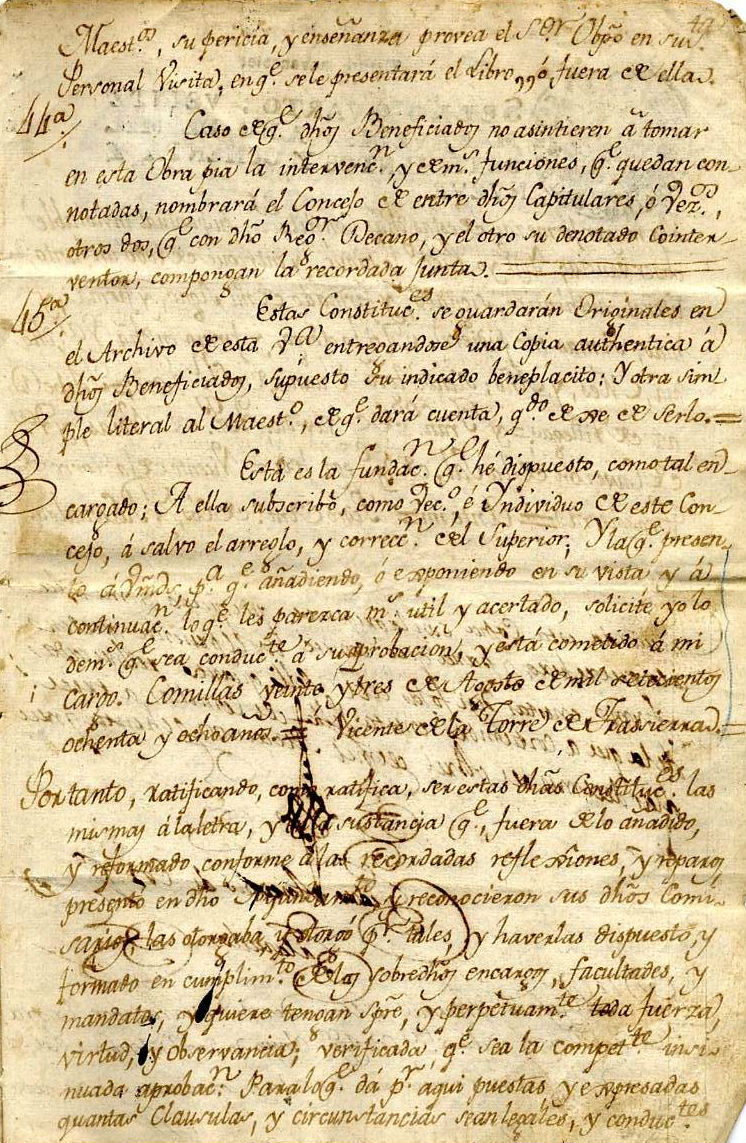 Maest.os, su pericia, y enseñanza provea el S.or Obpo en su
Personal Visita, en q.e se le presentará el Libro, ó fuera de ella.
44a. Caso de q.e dhos Beneficiados no asintieren á tomar
en esta Obra pia la intervenc.n, y dem.s funciones, q.e quedan con
notadas, nombrará el Concejo de entre dhos Capitulares, ó Vez.os,
otros dos, q.e con dho Reg.or Decano, y el otro su denotado Cointer-
ventor, compongan la recordada Junta.
45a. Estas Constituc.es se guardarán Originales en
el Archivo de esta V.a entregandose una Copia authentica á
dhos Beneficiados, supuesto su indicado beneplacito: Y otra sim
ple literal al Maest.o, de q.e dará cuenta, q.do dexe de serlo.=
Esta es la fundac.n q.e hé dispuesto, como tal en-
cargado; A ella subscribo, como Vec.o, é Individuo de este Con-
cejo, á salvo el arreglo, y correcc.n del Superior; Y la q.e presen-
to á Vmds, p.a q.e añadiendo, ó exponiendo en su vista y á
continuac.n lo q.e les parezca m.s util y acertado, solicite yo lo
dem.s q.e sea conduc.te á su aprobacion, y está cometido á mi
cargo. Comillas veinte y tres de Agosto de mil setecientos
ochenta y ocho años.= Vicente de la Torre de Trassierra.=
Portanto, ratificando, como ratifica, ser estas dhas Constituc.es las
mismas á la letra, y sustancia q.e, fuera de lo añadido,
y reformado conforme a las recordadas reflexiones, y reparos,
presentó en dho y reconocieron sus dhos Comi-
sarios, las otorgaba, y otorgó p.r tales, y haverlas dispuesto, y
formado en cumplim.to de los sobredhos encargos, facultades, y
mandatos, y quiere tengan spre, y perpetuam.te toda fuerza,
virtud, y observancia, verificada q.e sea la compet.te insi-
nuada aprobac.n Para lo q.e dá p.r aqui puestas y expresadas
quantas Clausulas, y circunstancias sean legales, y conduc.tes